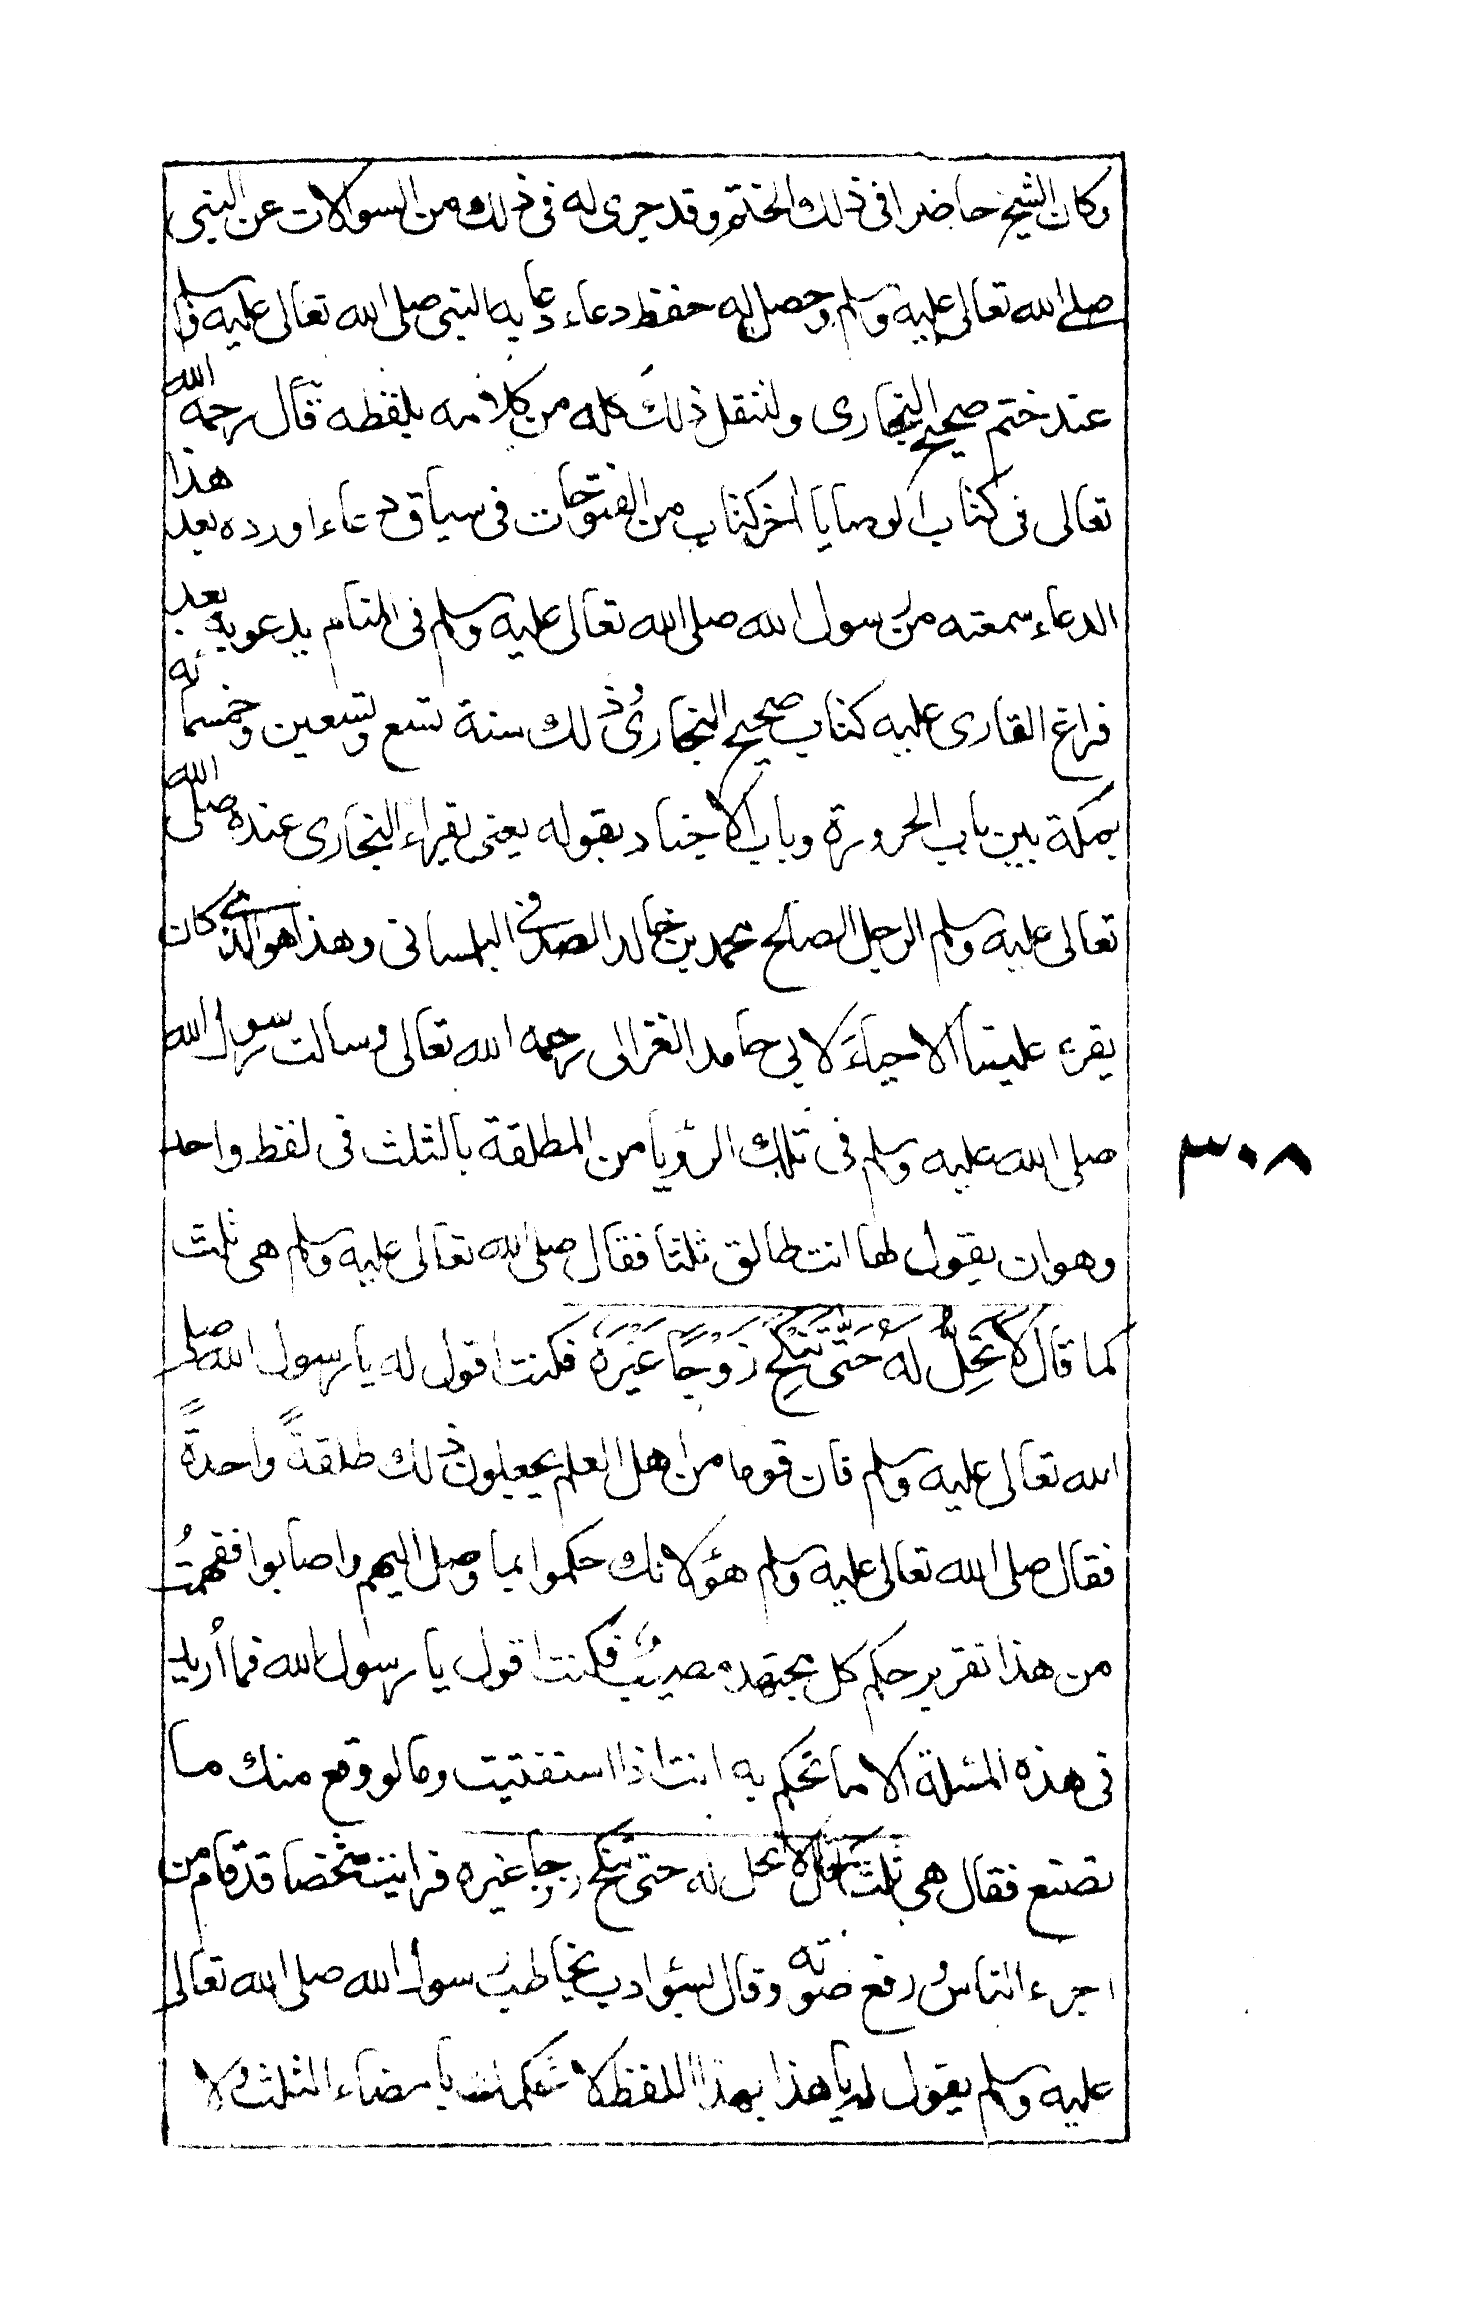 وكان الشيخ حاضرا فى ذلك الختم وقد جرى له فى ذلك من السوالات عن النبى
صلى الله تعالى عليه وسلم وحصل له حفظ دعاء دعا به النبى صلى الله تعالى عليه وسلم
عند ختم صحيح البخارى ولننقل ذلك كله من كلامه بلفظه قال رحمه الله
تعالى فى كتاب الوصايا اخر كتاب من الفتوحات فى سياق دعاء اورده بعد هذا
الدعاء سمعته من رسول الله صلى الله تعالى عليه وسلم فى المنام يدعو به بعد
فراغ القارى عليه كتاب صحيح البخارى وذلك سنة تسع وتسعين وخمسمائه
بمكة بين باب الحزورة وباب الاجياد بقوله يعنى بقراء البخارى عنده صلى الله
تعالى عليه وسلم الرجل الصالح محمد بن خالد الصدفى التلمسانى وهذا هو الذى كان
يقرء علينا الاحياء لابى حامد الغزالى رحمه الله تعالى وسالت رسول الله
صلى الله عليه وسلم فى تلك الرؤيا من المطلقة بالثلث فى لفظ واحد
وهو ان يقول لها انت طالق ثلثا فقال صلى الله تعالى عليه وسلم هى ثلث
كما قال لَا تَحِلُّ لَهُ حَتَّى تَنْكِحَ زَوْجًا غَيْرَهُ فكنت اقول له يا رسول الله صلى
الله تعالى عليه وسلم فان قوما من اهل العلم يجعلون ذلك طلقةً واحدةً
فقال صلى الله تعالى عليه وسلم هؤلائك حكموا بما وصل اليهم واصابوا ففهمتُ
من هذا تقرير حكم كل مجتهد مصيب فكنت اقول يا رسول الله فما أريد
فى هذه المسئلة الا ما تحكم به انت اذا استفتيت وما لو وقع منك ما
تصنع فقال هى ثلث كما قال لا تحل له حتى تنكح زوجا غيره فرايت شخصا قد قام من
اخرء الناس ورفع صوته وقال بسوء ادب يخاطب رسول الله صلى الله تعالى
عليه وسلم يقول له يا هذا بهذا اللفظ لا نحكمك بامضاء الثلث ولا
٣٠٨